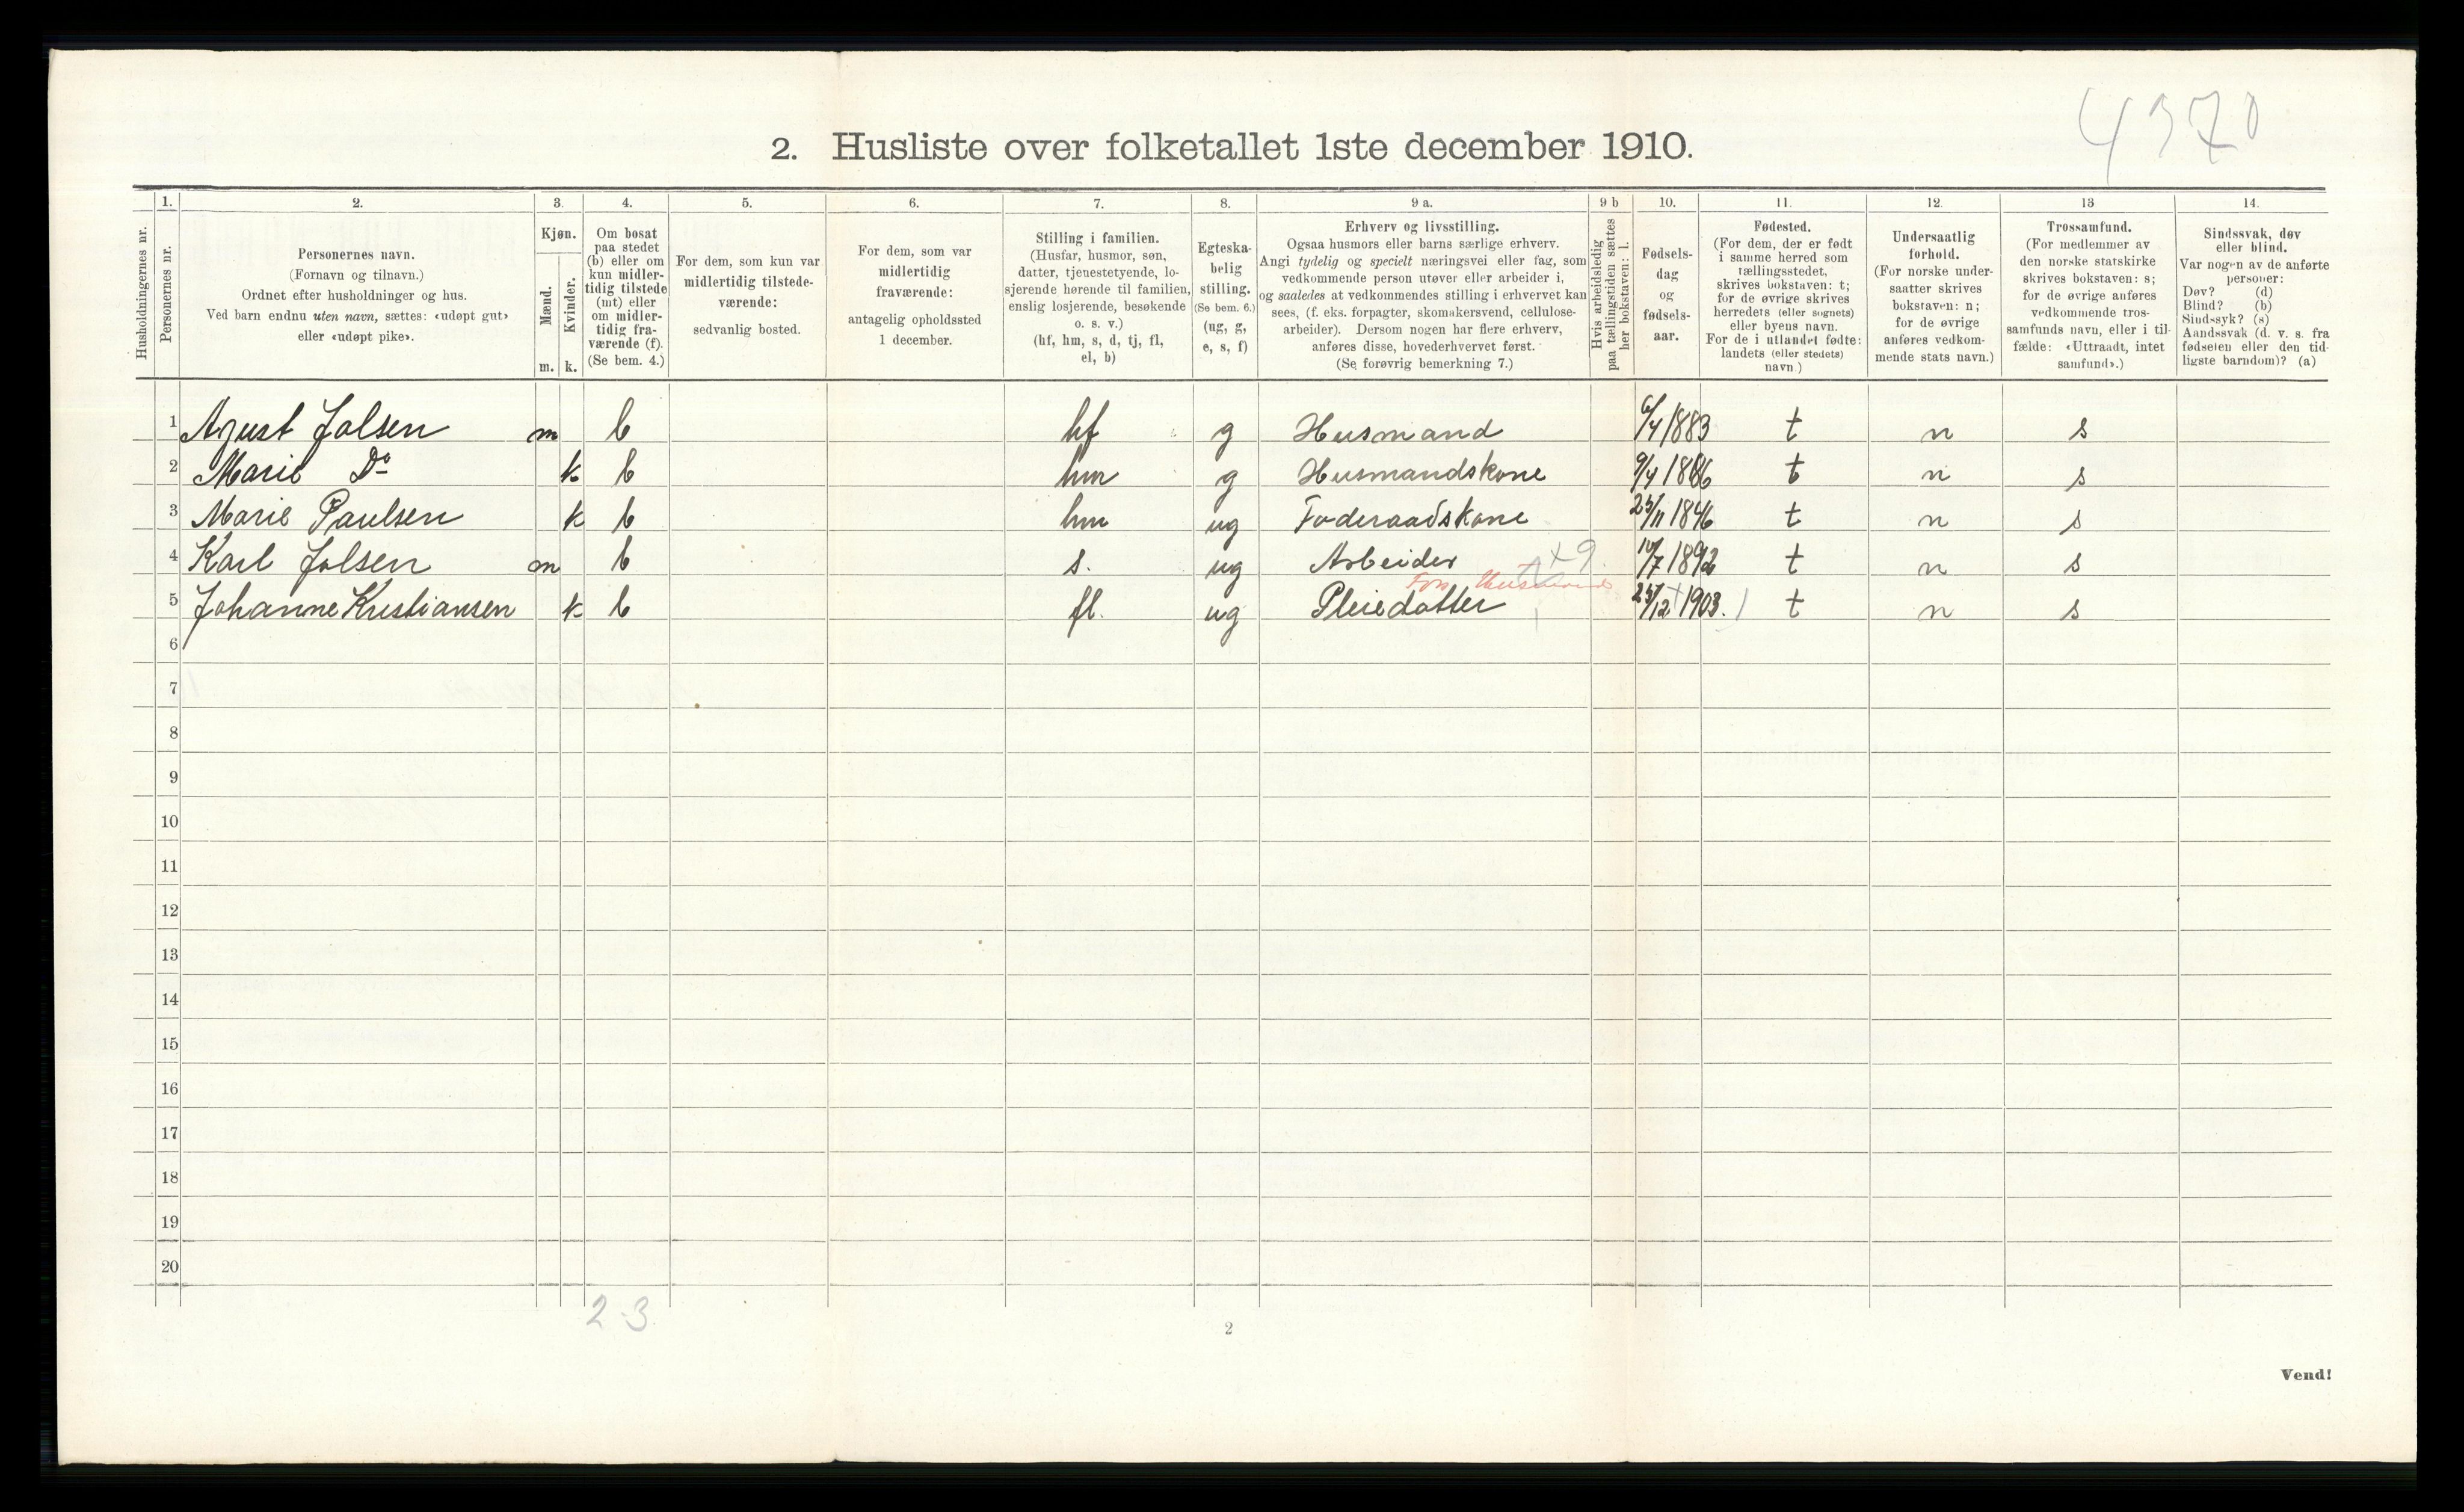 4370
2. Husliste over folketallet 1ste december 1910.
Husholdningernes nr.
1.
Personernes nr.
2.
Personernes navn.
(Fornavn og tilnavn.)
Ordnet efter husholdninger og hus.
Ved barn endnu uten navn, sættes: «udøpt gut»
eller «udøpt pike».
3.
Kjøn.
Mænd.
Kvinder.
m. k.
4.
Om bosat
paa stedet
(b) eller om
kun midler-
tidig tilstede
(mt) eller
om midler-
tidig fra-
værende (f).
(Se bem. 4.)
5.
For dem, som kun var
midlertidig tilstede-
værende:
sedvanlig bosted.
6.
For dem, som var
midlertidig
fraværende:
antagelig opholdssted
1 december.
7.
Stilling i familien.
(Husfar, husmor, søn,
datter, tjenestetyende, lo-
sjerende hørende til familien,
enslig losjerende, besøkende
o. s. v.)
(hf, hm, s, d, tj, fl,
el, b)
8.
Egteska-
belig
stilling.
(Se bem. 6.)
(ug, g,
e, s, f)
9 a.
Erhverv og livsstilling.
Ogsaa husmors eller barns særlige erhverv.
Angi tydelig og specielt næringsvei eller fag, som
vedkommende person utøver eller arbeider i,
og saaledes at vedkommendes stilling i erhvervet kan
sees, (f. eks. forpagter, skomakersvend, cellulose-
arbeider). Dersom nogen har flere erhverv,
anføres disse, hovederhvervet først.
(Se forøvrig bemerkning 7.)
9 b
Hvis arbeidsledig
paa tællingstiden sættes
her bokstaven: l.
10.
Fødsels-
dag
og
fødsels-
aar.
11.
Fødested.
(For dem, der er født
i samme herred som
tællingsstedet,
skrives bokstaven: t;
for de øvrige skrives
herredets (eller sognets)
eller byens navn.
For de i utlandet fødte:
landets (eller stedets)
navn.)
12.
Undersaatlig
forhold.
(For norske under-
saatter skrives
bokstaven: n;
for de øvrige
anføres vedkom-
mende stats navn.)
13
Trossamfund.
(For medlemmer av
den norske statskirke
skrives bokstaven: s;
for de øvrige anføres
vedkommende tros-
samfunds navn, eller i til-
fælde: «Uttraadt, intet
samfund».)
14.
Sindssvak, døv
eller blind.
Var nogen av de anførte
personer:
Døv? (d)
Blind? (b)
Sindssyk? (s)
Aandssvak (d. v. s. fra
fødselen eller den tid-
ligste barndom)? (a)
1 Agust Jolsen m b hf g Husmand 6/4 1883 t n s
2 Marie Do k b hm g Husmandskone 9/4 1886 t n s
3 Marie Paulsen k b hm ug Foderaadskone 25/11 1846 t n s
4 Karl Jolsen m b s. ug Arbeider x9. 10/7 1892 t n s
5 Johanne Kristiansen k b fl. ug Pleiedatter 25/12 1903. t n s
6
7
8
9
10
11
12
13
14
15
16
17
18
19
20
2-3
2
Vend!